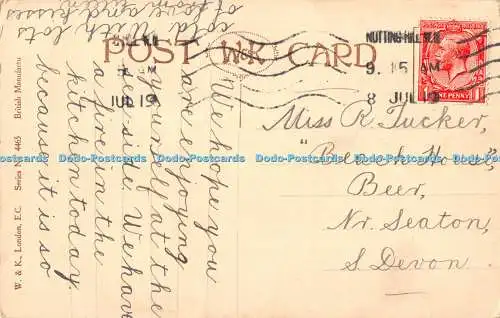 POST W&K CARD
NOTTING HILL W.11
9. 15 AM
8 JUL 19
JUL 19
ONE PENNY
We hope you
are enjoying
yourself at the
sea-side. We have
a fire in the
kitchen today
because it is so
cold. With lots
of love and kisses
from
Miss R. Tucker,
"Beach House,"
Beer,
Nr. Seaton,
S. Devon.
W. & K., London, E.C.
Series No. 4465
British Manufacture
Dodo-Postcards Dodo-Postcards Dodo-Postcards Dodo-Postcards Dodo-Postcards Dodo-Postcards